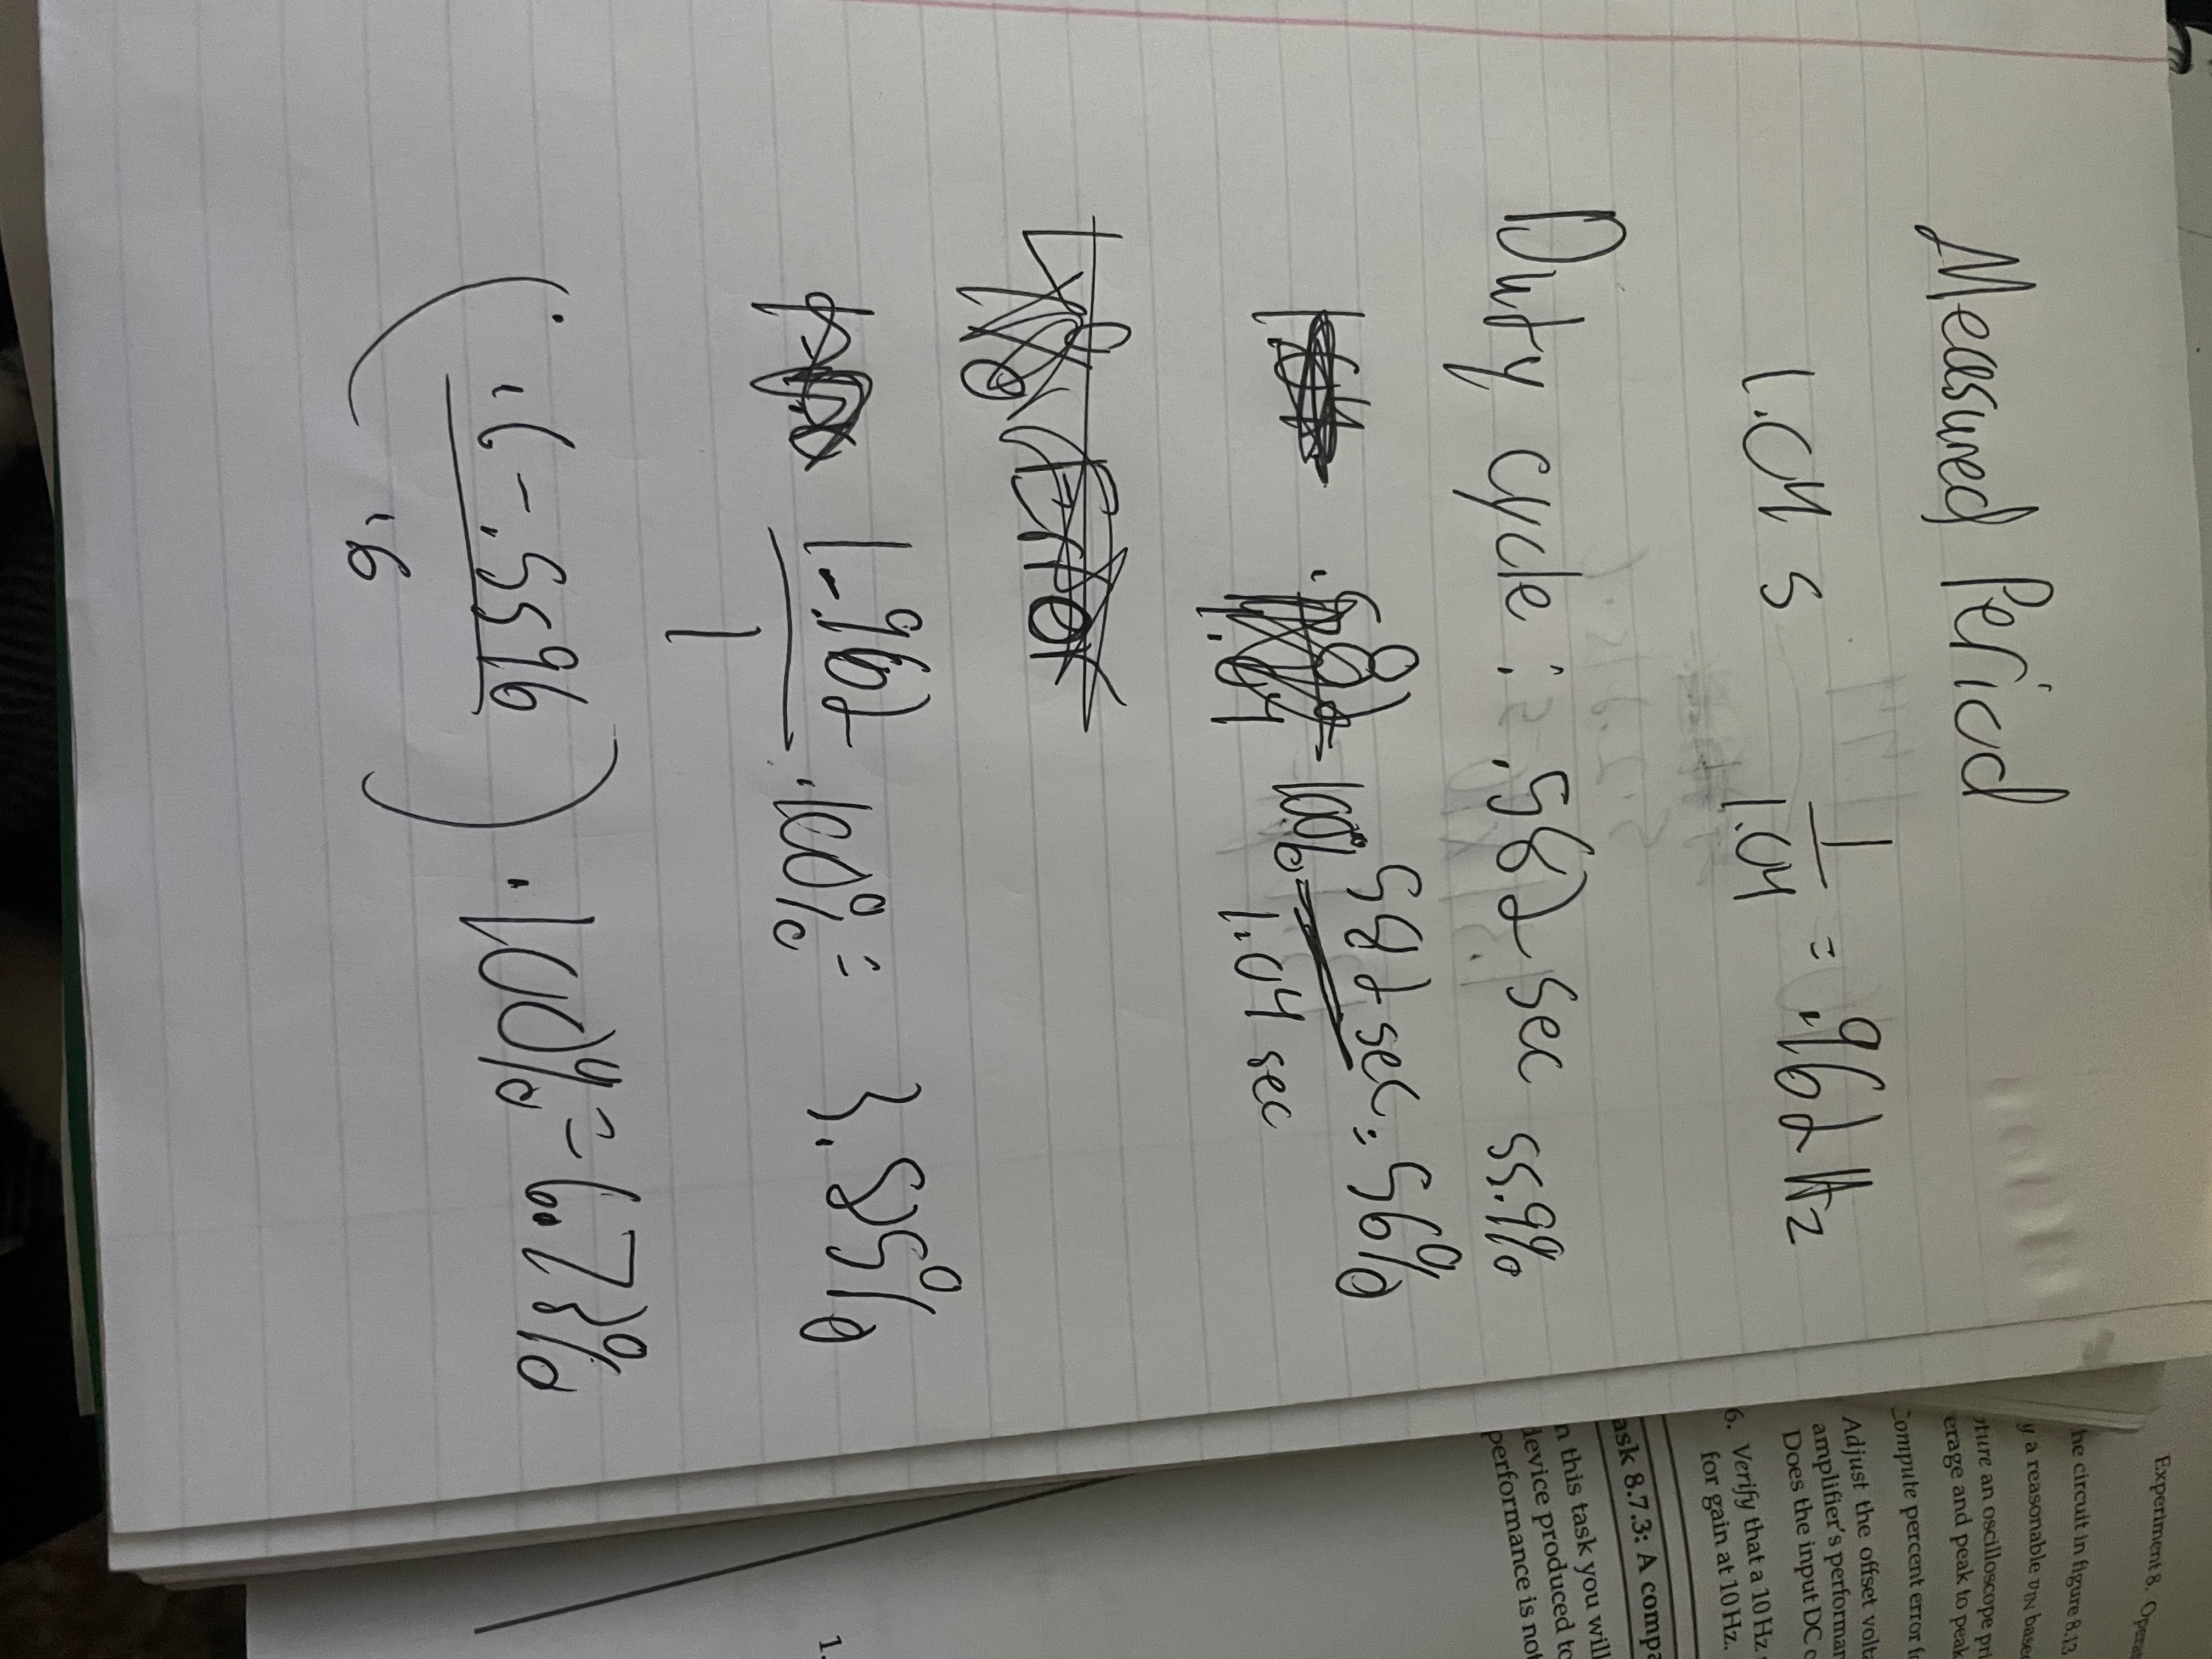 Measured Period
1.04 s 1/1.04 = .962 Hz
Duty cycle: .582 sec 55.9%
.582 / 1.04 100% = 582 sec / 1.04 sec = 56%
1-.962 / 1 . 100% = 3.85%
(.6 - .5596 / .6) . 100% = 6.73%
Experiment 8. Opera
he circuit in figure 8.13
y a reasonable vIN base
ture an oscilloscope pri
erage and peak to peak
Compute percent error f
Adjust the offset volt
amplifier's performan
Does the input DC
6. Verify that a 10 Hz
for gain at 10 Hz.
ask 8.7.3: A compa
n this task you will
device produced to
performance is not
1.